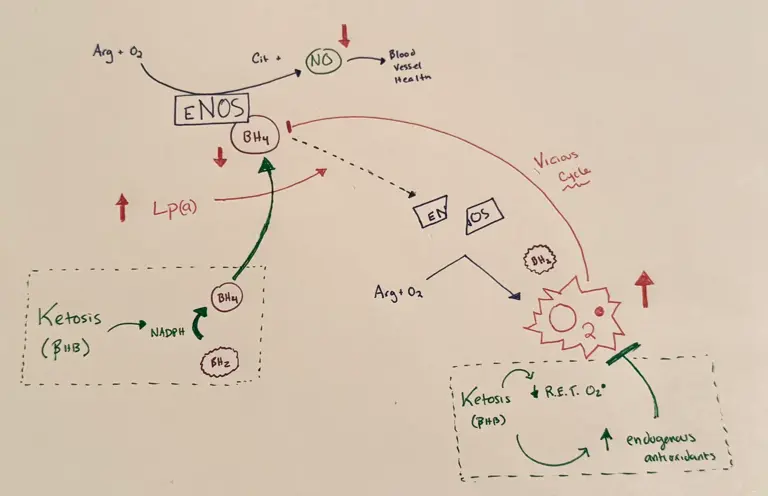 Arg + O₂
Cit +
NO
Blood
Vessel
Health
ENOS
BH₄
Vicious
Cycle
Lp(a)
EN
OS
BH₂
Arg + O₂
O₂
Ketosis
(βHB)
NADPH
BH₄
BH₂
Ketosis
(βHB)
R.E.T. O₂•
endogenous
antioxidants